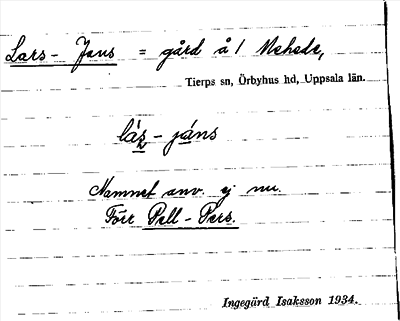 Lars-Jans = gård å 1 Mehede,
Tierps sn, Örbyhus hd, Uppsala län.
láṣ-jáns
Namnet anv. ej nu.
Förr Pell-Pers.
Ingegärd Isaksson 1934.